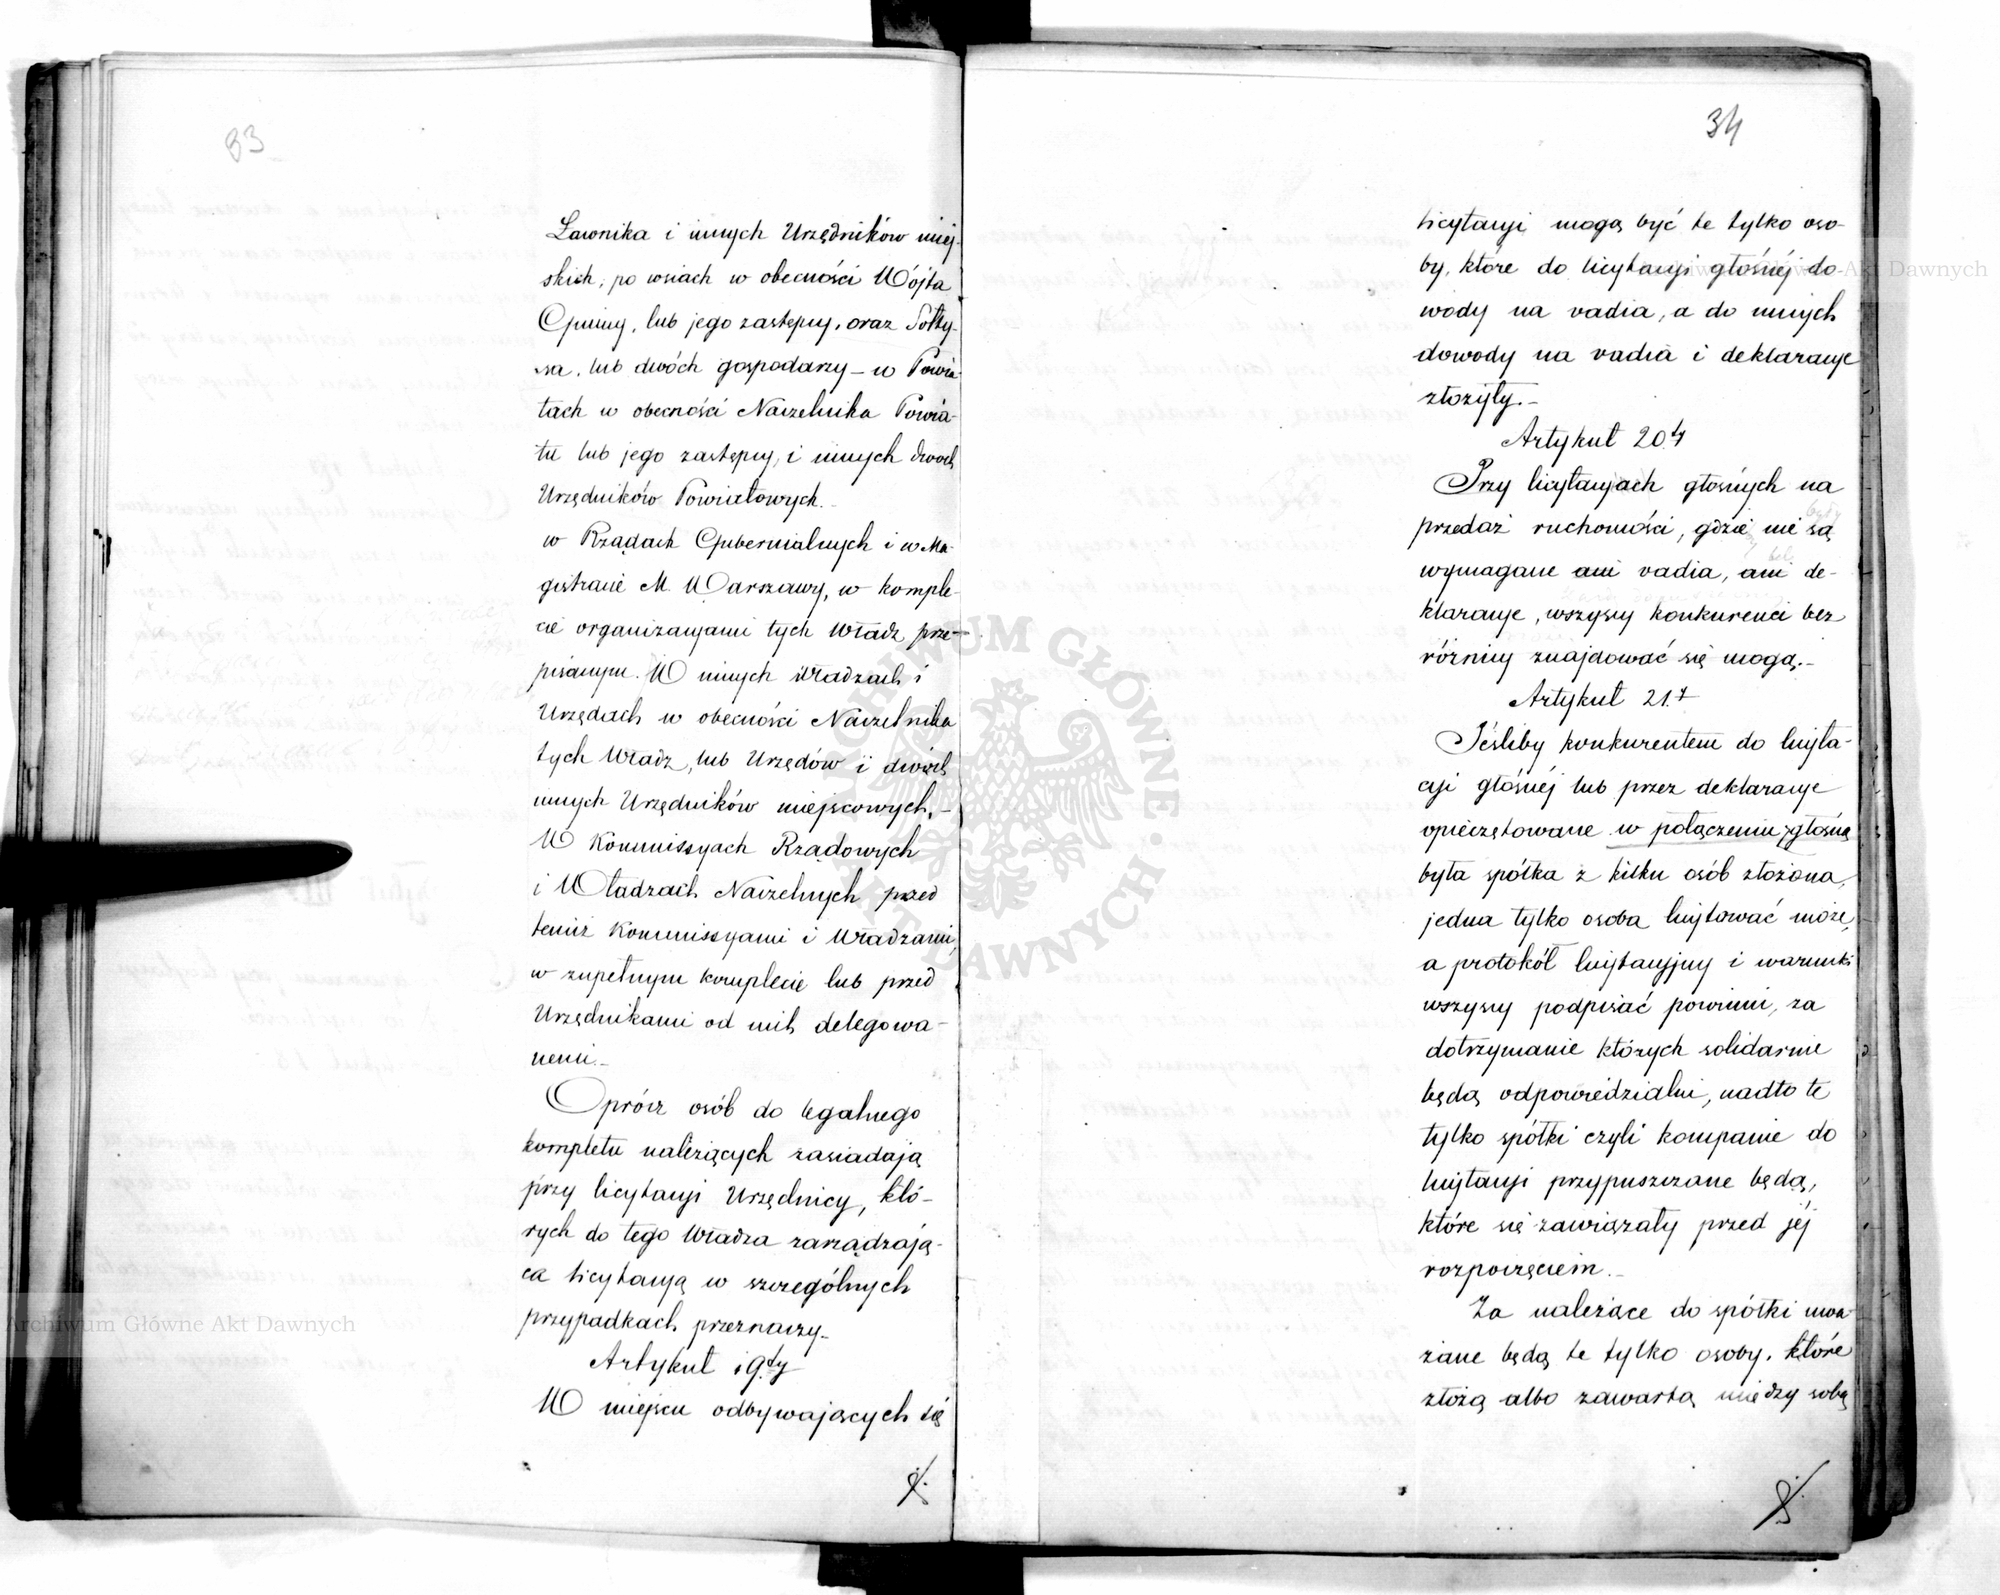 83
Ławnika i innych Urzędników miej-
skich; po wsiach w obecności Wójta
Gminy, lub jego zastępcy, oraz Sołty-
sa, lub dwóch gospodarzy – w Powia-
tach w obecności Naczelnika Powia-
tu lub jego zastępcy, i innych dwóch
Urzędników Powiatowych.–
w Rządach Gubernialnych i w Ma-
gistracie M. Warszawy, w komple-
cie organizacyami tych Władz prze-
pisanym. W innych Władzach i
Urzędach w obecności Naczelnika
tych Władz, lub Urzędów i dwóch
innych Urzędników miejscowych.–
W Kommissyach Rządowych
i Władzach Naczelnych przed
temiż Kommissyami i Władzami,
w zupełnym komplecie lub przed
Urzędnikami od nich delegowa-
nemi.–
Oprócz osób do legalnego
kompletu należących zasiadają
przy licytacyi Urzędnicy, któ-
rych do tego Władza zarządzają-
ca licytacyą w szczególnych
przypadkach przeznaczy.–
Artykuł 19ty
W miejscu odbywających się
34
licytacyi mogą być te tylko oso-
by, które do licytacyi głośnéj do
wody na vadia, a do innych
dowody na vadia i deklaracye
złożyły.–
Artykuł 20.ty
Przy licytacyach głośnych na
przedaż ruchomości, gdzie nie są
wymagane ani vadia, ani de-
klaracye, wszyscy konkurenci bez
różnicy znajdować się mogą.–
Artykuł 21.
Jeśliby konkurentem do licyta-
cyi głośnéj lub przez deklaracye
opieczętowane w połączeniu z głośną
była spółka z kilku osób złożona,
jedna tylko osoba licytować może,
a protokół licytacyjny i warunki
wszyscy podpisać powinni, za
dotrzymanie których solidarnie
będą odpowiedzialni, nadto te
tylko spółki czyli kompanie do
licytacyi przypuszczane będą,
które się zawiązały przed jéj
rozpoczęciem.–
Za należące do spółki uwa
żane będą te tylko osoby, które
złożą albo zawartą między sobą
Archiwum Główne Akt Dawnych
Archiwum Główne Akt Dawnych
ARCHIWUM GŁÓWNE · AKT DAWNYCH ·